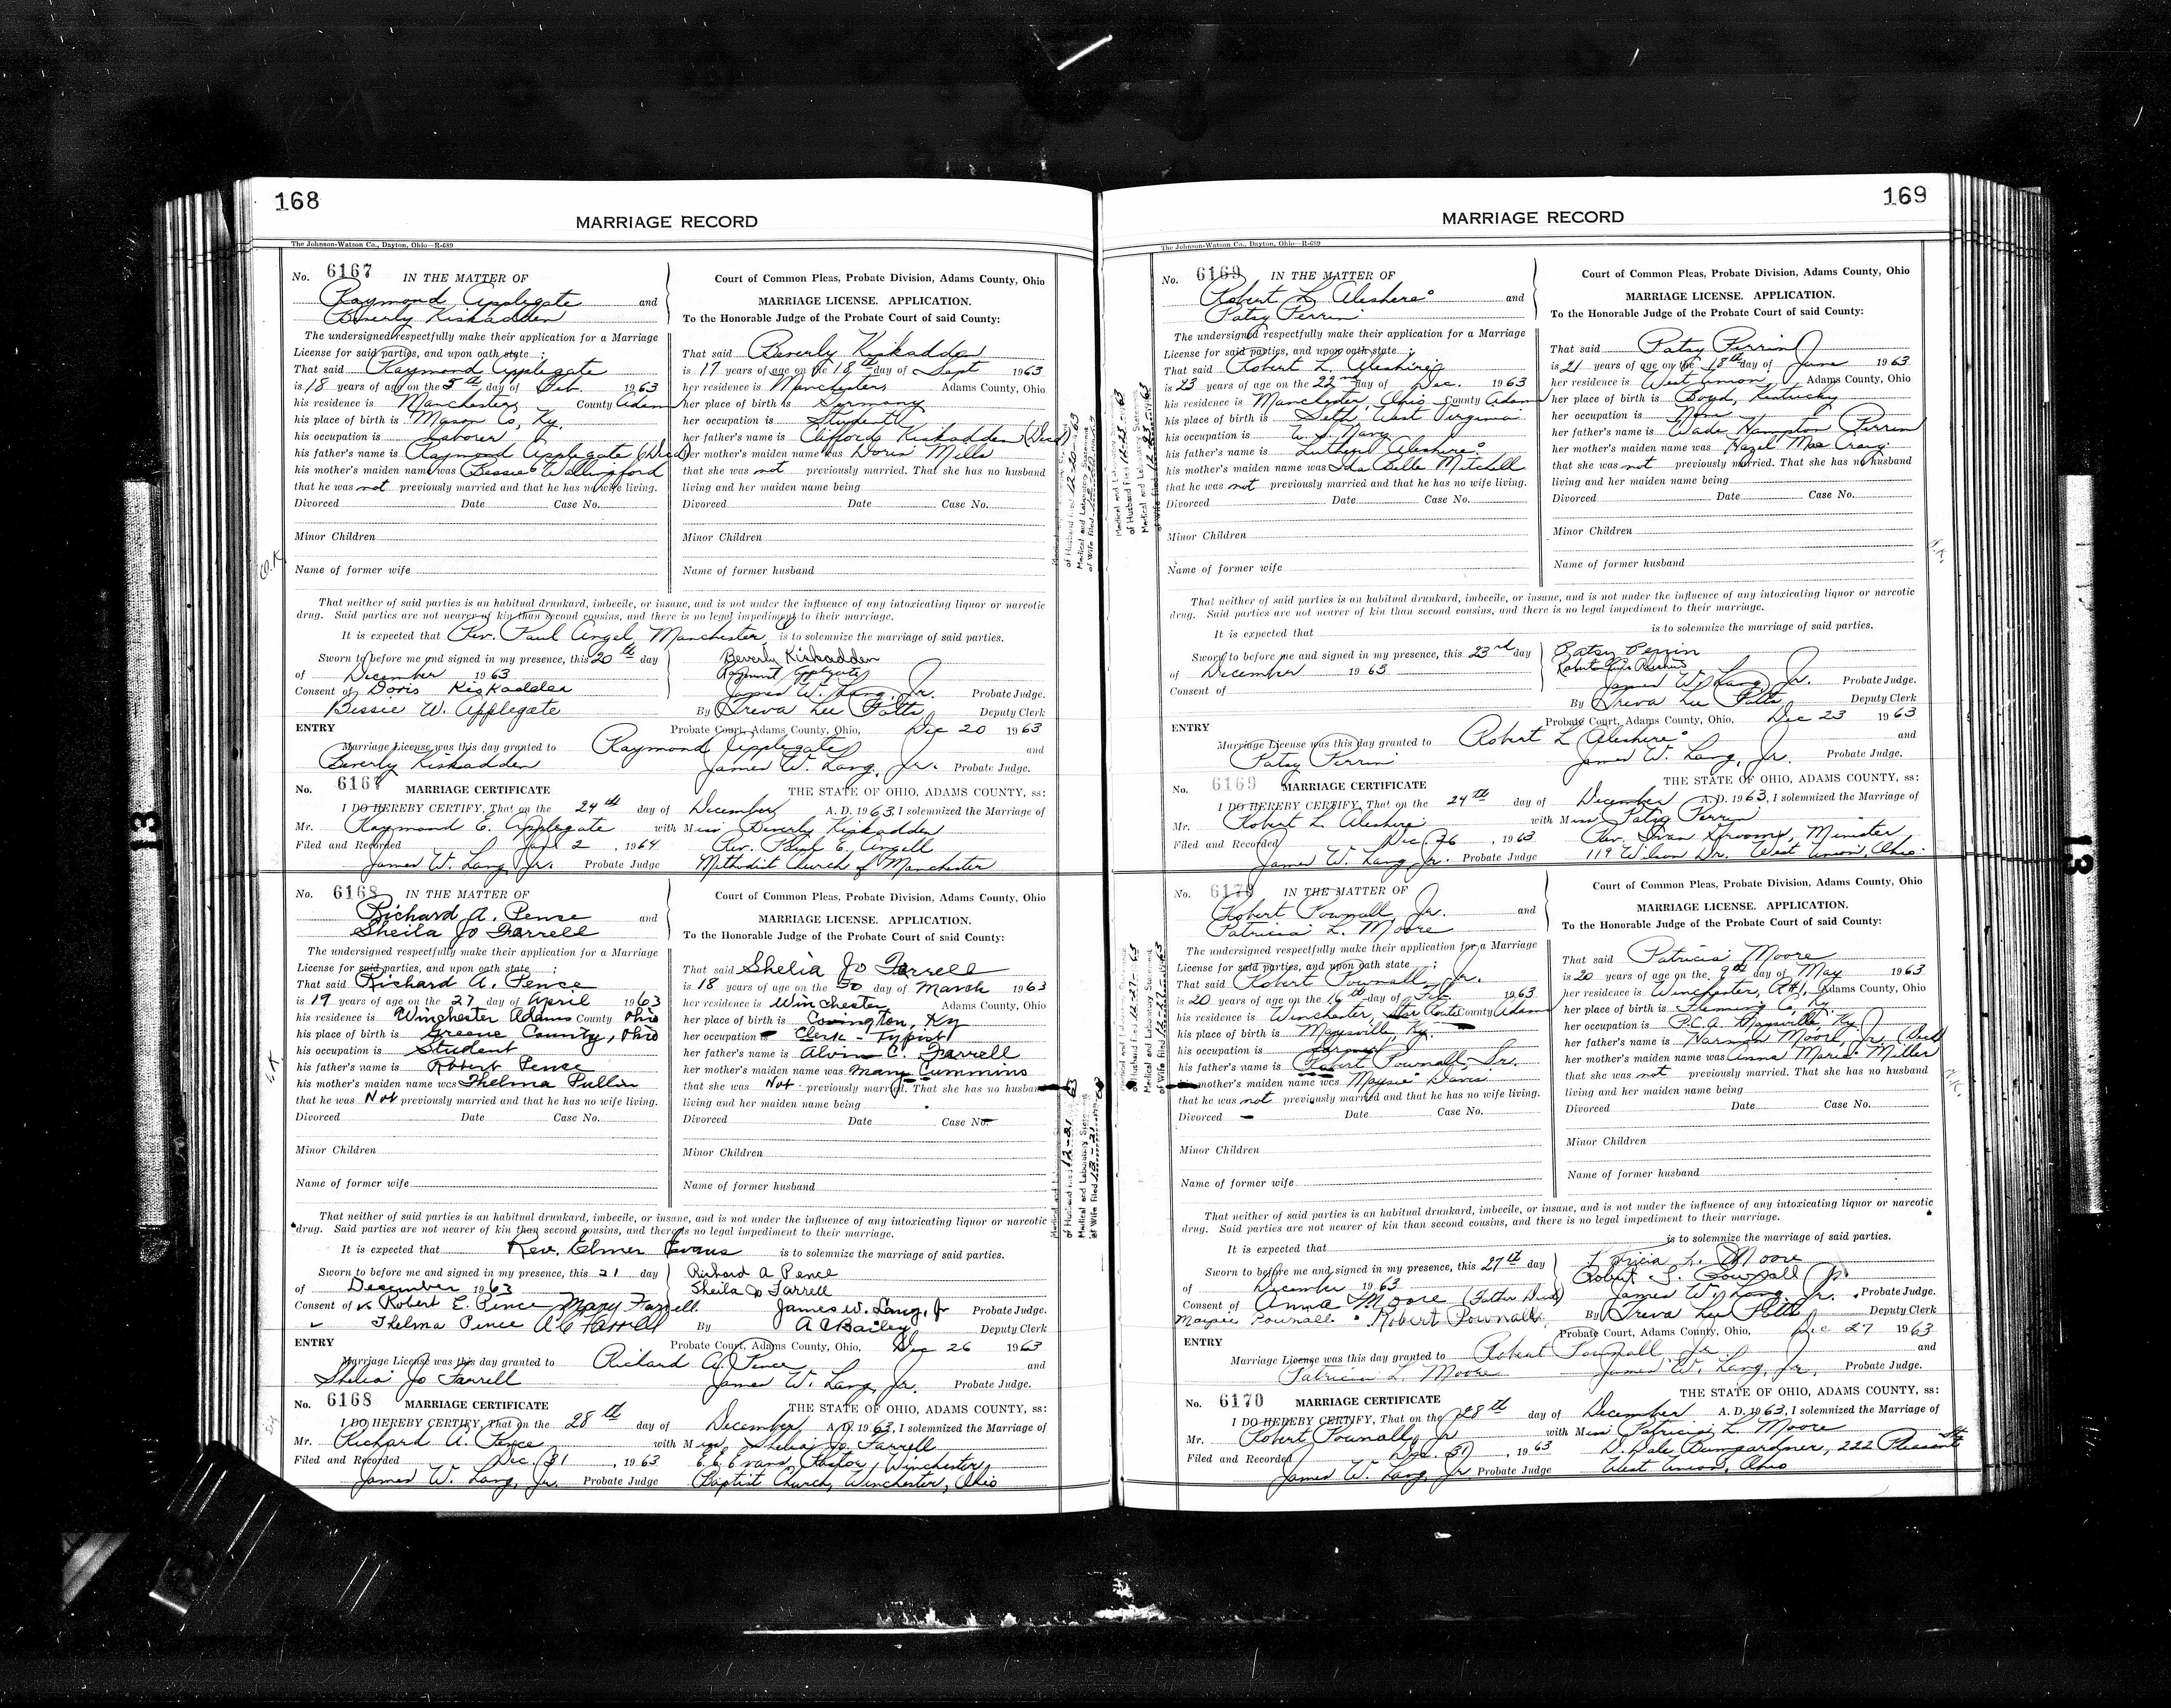 168
MARRIAGE RECORD
The Johnson-Watson Co., Dayton, Ohio—R-689
No. 6167 IN THE MATTER OF
Raymond Applegate and
Beverly Kiskadden
The undersigned respectfully make their application for a Marriage
License for said parties, and upon oath state ;
That said Raymond Applegate
is 18 years of age on the 5th day of Feb. 1963
his residence is Manchester, County Adams
his place of birth is Mason Co, Ky.
his occupation is Laborer
his father's name is Raymond Applegate (Dec'd)
his mother's maiden name was Bessie Wallingford
that he was not previously married and that he has no wife living.
Divorced Date Case No.
Minor Children
Name of former wife
Court of Common Pleas, Probate Division, Adams County, Ohio
MARRIAGE LICENSE. APPLICATION.
To the Honorable Judge of the Probate Court of said County:
That said Beverly Kiskadden
is 17 years of age on the 18th day of Sept 1963
her residence is Manchester Adams County, Ohio
her place of birth is Germany
her occupation is Student
her father's name is Clifford Kiskadden (Dec'd)
her mother's maiden name was Doris Mills
that she was not previously married. That she has no husband
living and her maiden name being
Divorced Date Case No.
Minor Children
Name of former husband
That neither of said parties is an habitual drunkard, imbecile, or insane, and is not under the influence of any intoxicating liquor or narcotic
drug. Said parties are not nearer of kin than second cousins, and there is no legal impediment to their marriage.
It is expected that Rev. Paul Angel, Manchester is to solemnize the marriage of said parties.
Sworn to before me and signed in my presence, this 20th day
of December 1963
Consent of Doris Kiskadden
Bessie W. Applegate
Beverly Kiskadden
Raymond Applegate
James W. Lang, Jr. Probate Judge.
By Treva Lee Potts Deputy Clerk
ENTRY Probate Court, Adams County, Ohio, Dec 20 1963
Marriage License was this day granted to Raymond Applegate and
Beverly Kiskadden James W. Lang, Jr. Probate Judge.
No. 6167 MARRIAGE CERTIFICATE THE STATE OF OHIO, ADAMS COUNTY, ss:
I DO HEREBY CERTIFY, That on the 24th day of December A. D. 1963, I solemnized the Marriage of
Mr. Raymond E. Applegate with Miss Beverly Kiskadden
Filed and Recorded Jan 2, 1964 Rev. Paul E. Angell
James W. Lang, Jr. Probate Judge Methodist Church of Manchester
No. 6168 IN THE MATTER OF
Richard A. Pence and
Sheila Jo Farrell
The undersigned respectfully make their application for a Marriage
License for said parties, and upon oath state ;
That said Richard A. Pence
is 19 years of age on the 27 day of April 1963
his residence is Winchester Adams County Ohio
his place of birth is Greene County, Ohio
his occupation is Student
his father's name is Robert Pence
his mother's maiden name was Thelma Pullin
that he was Not previously married and that he has no wife living.
Divorced Date Case No.
Minor Children
Name of former wife
Court of Common Pleas, Probate Division, Adams County, Ohio
MARRIAGE LICENSE. APPLICATION.
To the Honorable Judge of the Probate Court of said County:
That said Shelia Jo Farrell
is 18 years of age on the 30 day of March 1963
her residence is Winchester Adams County, Ohio
her place of birth is Covington, Ky
her occupation Clerk - Typist
her father's name is Alvin C. Farrell
her mother's maiden name was Mary Cummins
that she was Not previously married. That she has no husband
living and her maiden name being
Divorced Date Case No.
Minor Children
Name of former husband
That neither of said parties is an habitual drunkard, imbecile, or insane, and is not under the influence of any intoxicating liquor or narcotic
drug. Said parties are not nearer of kin than second cousins, and there is no legal impediment to their marriage.
It is expected that Rev. Elmer Evans is to solemnize the marriage of said parties.
Sworn to before me and signed in my presence, this 21 day
of December 1963
Consent of Robert E. Pence Mary Farrell
Thelma Pence A C Farrell
Richard A Pence
Sheila Jo Farrell
James W. Lang, Jr Probate Judge.
By A C Bailey Deputy Clerk
ENTRY Probate Court, Adams County, Ohio, Dec 26 1963
Marriage License was this day granted to Richard A. Pence and
Shelia Jo Farrell James W. Lang, Jr. Probate Judge.
No. 6168 MARRIAGE CERTIFICATE THE STATE OF OHIO, ADAMS COUNTY, ss:
I DO HEREBY CERTIFY, That on the 28th day of December A. D. 1963, I solemnized the Marriage of
Mr. Richard A. Pence with Miss Shelia Jo Farrell
Filed and Recorded Dec. 31, 1963 Evans, Pastor, Winchester,
James W. Lang, Jr. Probate Judge Baptist Church, Winchester, Ohio
169
MARRIAGE RECORD
The Johnson-Watson Co., Dayton, Ohio—R-689
No. 6169 IN THE MATTER OF
Robert L. Aleshire and
Patsy Perrin
The undersigned respectfully make their application for a Marriage
License for said parties, and upon oath state ;
That said Robert L. Aleshire
is 23 years of age on the 22nd day of Dec. 1963
his residence is Manchester, Ohio County Adams
his place of birth is Seth, West Virginia
his occupation is U. S. Navy
his father's name is Luther Aleshire
his mother's maiden name was Ida Belle Mitchell
that he was not previously married and that he has no wife living.
Divorced Date Case No.
Minor Children
Name of former wife
Court of Common Pleas, Probate Division, Adams County, Ohio
MARRIAGE LICENSE. APPLICATION.
To the Honorable Judge of the Probate Court of said County:
That said Patsy Perrin
is 21 years of age on the 18th day of June 1963
her residence is West Union, Adams County, Ohio
her place of birth is Boyd, Kentucky
her occupation is None
her father's name is Wade Hampton Perrin
her mother's maiden name was Hazel Mae Craig
that she was not previously married. That she has no husband
living and her maiden name being
Divorced Date Case No.
Minor Children
Name of former husband
That neither of said parties is an habitual drunkard, imbecile, or insane, and is not under the influence of any intoxicating liquor or narcotic
drug. Said parties are not nearer of kin than second cousins, and there is no legal impediment to their marriage.
It is expected that is to solemnize the marriage of said parties.
Sworn to before me and signed in my presence, this 23rd day
of December 1963
Consent of
Patsy Perrin
James W. Lang, Jr. Probate Judge.
By Treva Lee Potts Deputy Clerk
ENTRY Probate Court, Adams County, Ohio, Dec 23 1963
Marriage License was this day granted to Robert L Aleshire and
Patsy Perrin James W. Lang, Jr. Probate Judge.
No. 6169 MARRIAGE CERTIFICATE THE STATE OF OHIO, ADAMS COUNTY, ss:
I DO HEREBY CERTIFY, That on the 24th day of December A. D. 1963, I solemnized the Marriage of
Mr. Robert L. Aleshire with Miss Patsy Perrin
Filed and Recorded Dec. 26, 1963 Rev. Ivan Minister
James W. Lang, Jr. Probate Judge 119 Wilson Dr. West Union, Ohio.
No. 6170 IN THE MATTER OF
Robert Pownall, Jr. and
Patricia L. Moore
The undersigned respectfully make their application for a Marriage
License for said parties, and upon oath state ;
That said Robert Pownall, Jr.
is 20 years of age on the 16th day of Feb 1963
his residence is Winchester, Star Route County Adams
his place of birth is Maysville, Ky.
his occupation is Farmer
his father's name is Robert Pownall, Sr.
his mother's maiden name was Maysie Davis
that he was not previously married and that he has no wife living.
Divorced Date Case No.
Minor Children
Name of former wife
Court of Common Pleas, Probate Division, Adams County, Ohio
MARRIAGE LICENSE. APPLICATION.
To the Honorable Judge of the Probate Court of said County:
That said Patricia Moore
is 20 years of age on the 9th day of May 1963
her residence is Winchester, R#1, Adams County, Ohio
her place of birth is Fleming Co. Ky.
her occupation is P.C.A. Maysville, Ky.
her father's name is Norman Moore, Jr. (Dec'd)
her mother's maiden name was Anna Marie Miller
that she was not previously married. That she has no husband
living and her maiden name being
Divorced Date Case No.
Minor Children
Name of former husband
That neither of said parties is an habitual drunkard, imbecile, or insane, and is not under the influence of any intoxicating liquor or narcotic
drug. Said parties are not nearer of kin than second cousins, and there is no legal impediment to their marriage.
It is expected that is to solemnize the marriage of said parties.
Sworn to before me and signed in my presence, this 27th day
of December 1963
Consent of Anna Moore (Father Dec'd)
Maysie Pownall Robert Pownall
Patricia L. Moore
Robert Pownall Jr.
James W. Lang, Jr. Probate Judge.
By Treva Lee Potts Deputy Clerk
ENTRY Probate Court, Adams County, Ohio, Dec 27 1963
Marriage License was this day granted to Robert Pownall, Jr. and
Patricia L. Moore James W. Lang, Jr. Probate Judge.
No. 6170 MARRIAGE CERTIFICATE THE STATE OF OHIO, ADAMS COUNTY, ss:
I DO HEREBY CERTIFY, That on the 28th day of December A. D. 1963, I solemnized the Marriage of
Mr. Robert Pownall, Jr with Miss Patricia L. Moore
Filed and Recorded Dec. 31, 1963 D. Dale Bumgardner, 222 Pleasant St.
James W. Lang, Jr Probate Judge West Union, Ohio
13
13